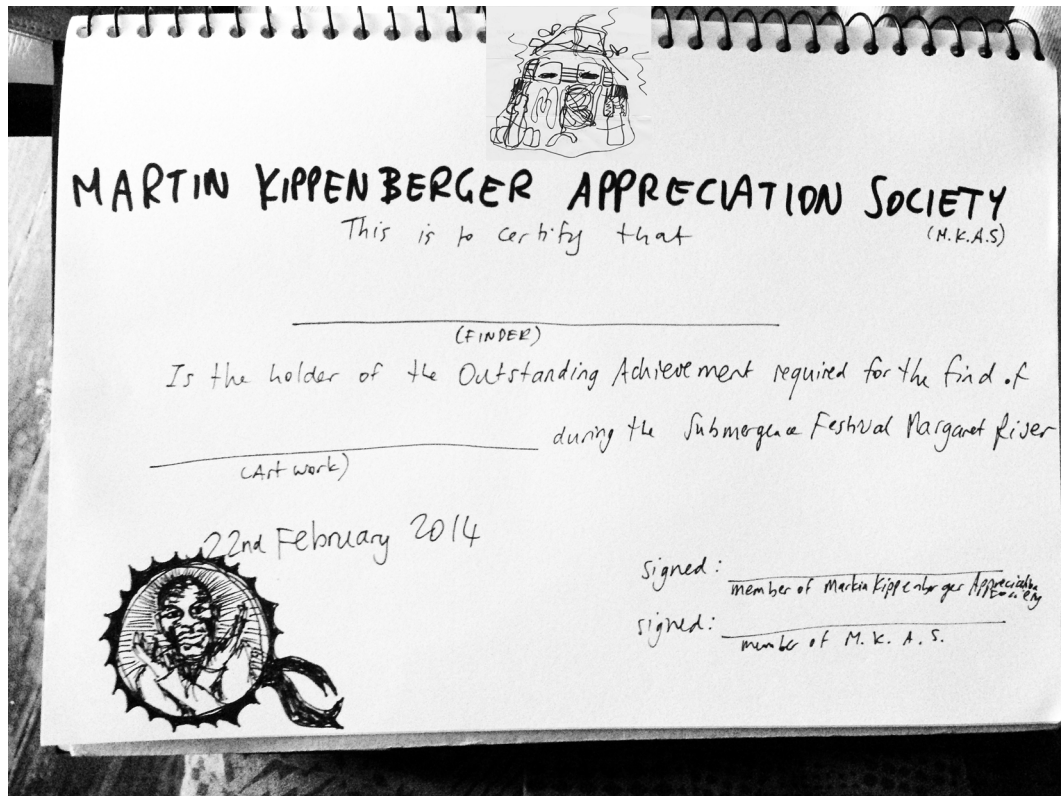 MARTIN KIPPENBERGER APPRECIATION SOCIETY
(M.K.A.S)
This is to certify that
(FINDER)
Is the holder of the Outstanding Achievement required for the find of
during the Submergence Festival Margaret River
(Art work)
22nd February 2014
signed:
member of Martin Kippenberger Appreciation Society
signed:
member of M. K. A. S.